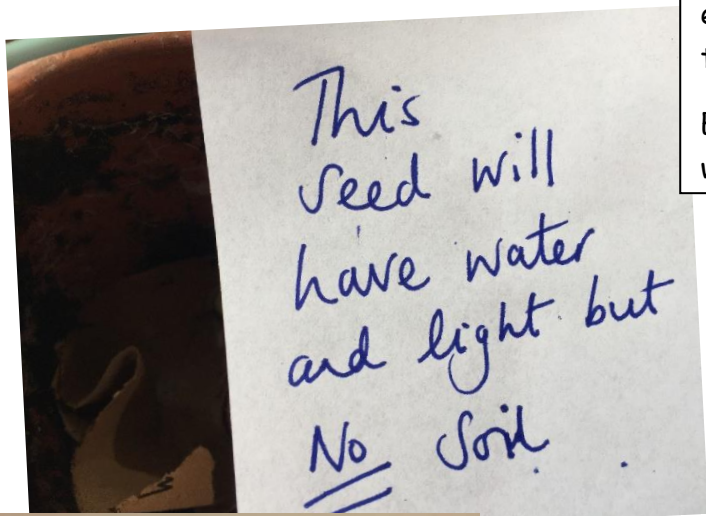 This
seed will
have water
and light but
No soil